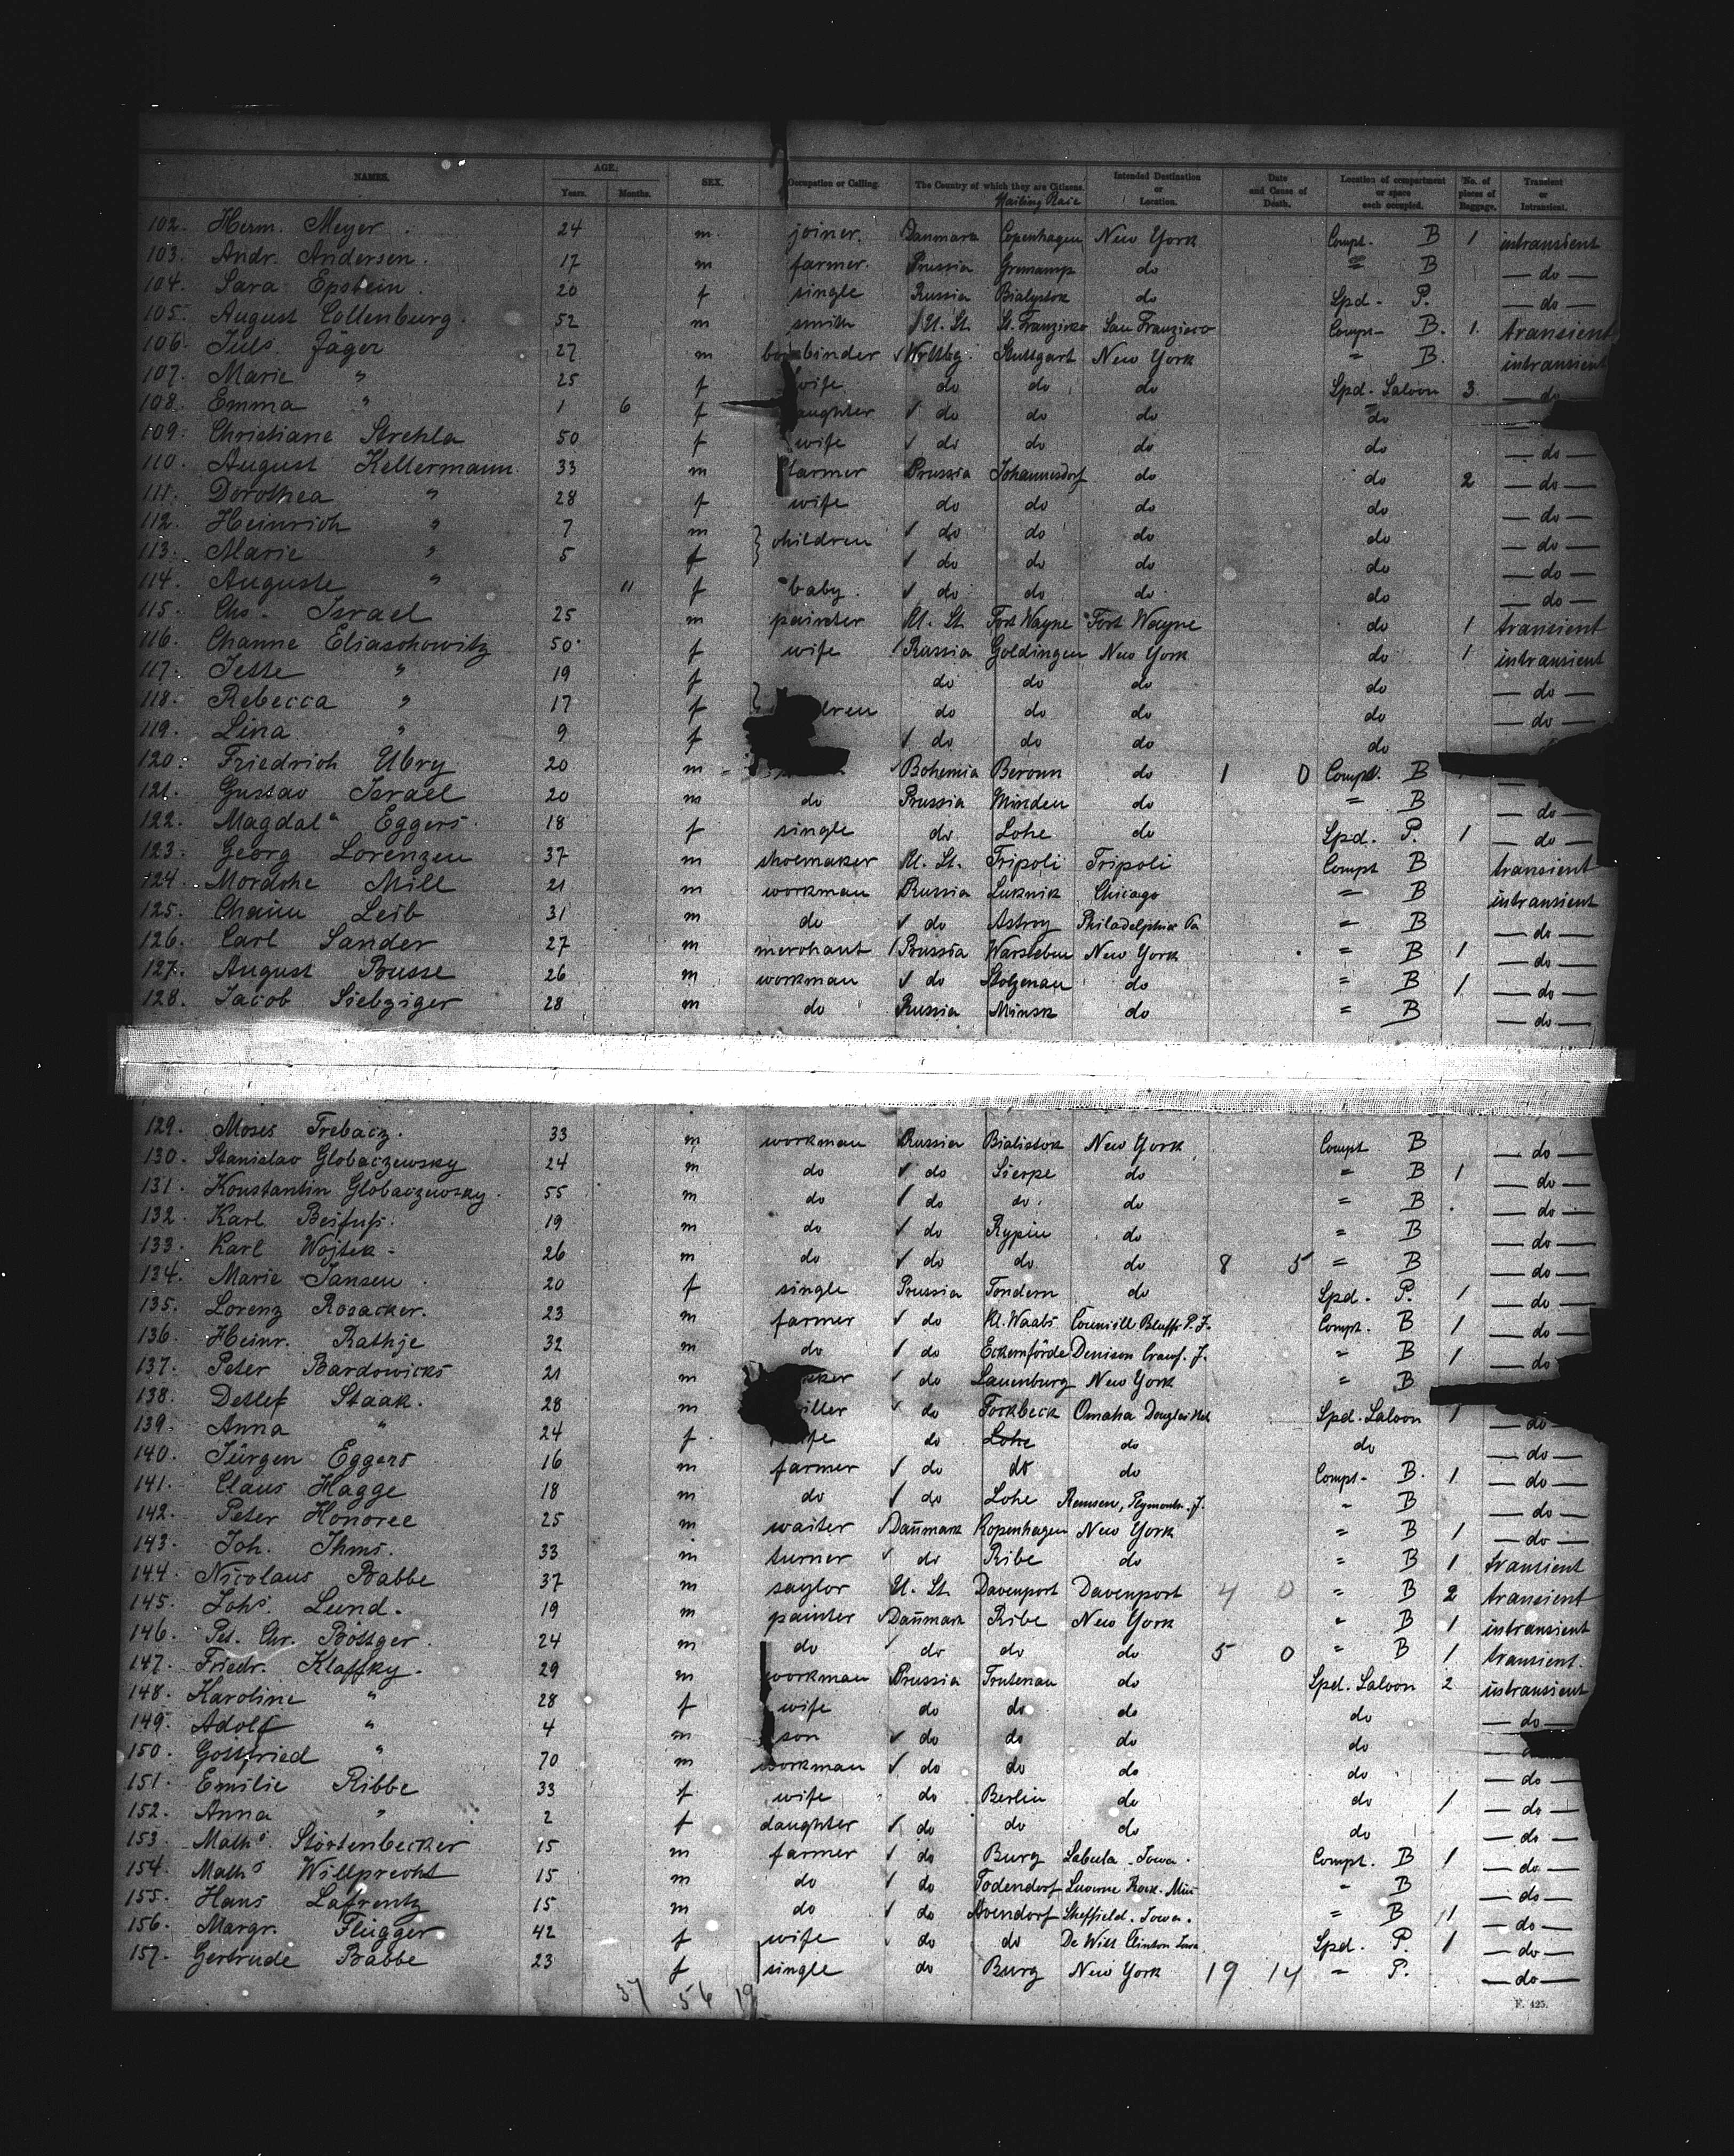 NAMES. AGE. SEX. Occupation or Calling. The Country of which they are Citizens. Intended Destination or Location. Date and Cause of Death. Location of compartment or space each occupied. No. of pieces of Baggage. Transient or Intransient.
Years. Months.
102. Herm. Meyer. 24 m. joiner. Danmark Copenhagen New York Compt. B 1 intransient
103. Andr. Andersen. 17 m farmer. Prussia do " B — do —
104. Sara Epstein. 20 f single Russia Bialystok do Spd. P. — do —
105. August Collenburg. 52 m smith U. St. St. Franzisco San Franzisco Compt. B. 1. transient
106. Juls. Jäger 27 m binder Wrttbg. Stuttgart New York " B. intransient
107. Marie " 25 f wife do do do Spd. Saloon 3 — do
108. Emma " 1 6 f aughter do do do do
109. Christiane Strehla 50 f wife do do do do — do —
110. August Kellermann 33 m farmer Prussia Johannesdorf do do 2 — do —
111. Dorothea " 28 f wife do do do do — do —
112. Heinrich " 7 m children do do do do — do —
113. Marie " 5 f do do do do — do —
114. Auguste " 11 f baby. do do do do — do —
115. Chs. Israel 25 m painter U. St. Fort Wayne Fort Wayne do 1 transient
116. Channe Eliaschowitz 50 f wife Russia Goldingen New York do 1 intransient
117. Jette " 19 f do do do do — do —
118. Rebecca " 17 f dren do do do do — do —
119. Lina " 9 f do do do do
120. Friedrich Ubry 20 m Bohemia Beroun do 1 0 Compt. B
121. Gustav Israel 20 m do Prussia Minden do " B — do —
122. Magdal^a Eggers. 18 f single do Lohe do Spd. P. 1 — do —
123. Georg Lorenzen 37 m shoemaker U. St. Tripoli Tripoli Compt B transient
124. Mordche Mill 21 m workman Russia Luknik Chicago " B intransient
125. Chaim Leib 31 m do do Astroy Philadelphia Pa " B — do —
126. Carl Sander 27 m merchant Prussia Warsleben New York " B 1 — do —
127. August Busse 26 m workman do Stolzenau do " B 1 — do —
128. Jacob Siebziger 28 m do Russia Minsk do " B — do —
129. Moses Trebacz. 33 m workman Russia Bialistok New York Compt B — do —
130. Stanislav Globaczewsky 24 m do do Sierpe do " B 1 — do —
131. Konstantin Globaczewsky. 55 m do do do do " B — do —
132. Karl Beifuß. 19 m do do Rypin do " B — do —
133. Karl Wojtek 26 m do do do do 8 5 " B — do —
134. Marie Jansen 20 f single Prussia Tondern do Spd. P. 1 — do —
135. Lorenz Rosacker. 23 m farmer do Kl. Waabs Councill Bluffs P. J. Compt. B 1 — do —
136. Heinr. Rathje 32 m do do Eckernförde Denison Crawf. J. " B 1 — do —
137. Peter Bardowicks 21 m do Lauenburg New York " B — do
138. Detlef Staak. 28 m iller do Fockbeck Omaha Spd. Saloon 1 — do —
139. Anna " 24 f. fe do Lohe do do — do —
140. Jürgen Eggers 16 m farmer do do do Compt. B. 1. — do —
141. Claus Hagge 18 m do do Lohe Remsen, Plymouth. J. " B — do —
142. Peter Honoree 25 m waiter Danmark Kopenhagen New York " B 1 — do —
143. Joh. Thms. 33 m turner do Ribe do " B 1 transient
144. Nicolaus Babbe 37 m saylor U. St. Davenport Davenport 4 0 " B 2 transient
145. Johs. Lund. 19 m painter Danmark Ribe New York " B 1 intransient
146. Pet. Chr. Böttger. 24 m do do do do 5 0 " B 1 transient.
147. Friedr. Klaffky. 29 m workman Prussia Trutenau do Spd. Saloon 2 intransient
148. Karoline " 28 f wife do do do do — do —
149. Adolf " 4 m son do do do do
150. Gottfried " 70 m workman do do do do — do —
151. Emilie Ribbe 33 f wife do Berlin do do 1 — do —
152. Anna " 2 f daughter do do do do — do —
153. Maths Störtenbecker 15 m farmer do Burg Sabula Iowa. Compt. B 1 — do —
154. Maths Willprecht 15 m do do Todendorf Luverne Rock. Min " B — do —
155. Hans Lafrentz 15 m do do Avendorf Sheffield. Iowa. " B 11 — do —
156. Margr. Flügger 42 f wife do do De Witt Clinton Iowa Spd. P. 1 — do —
157. Gertrude Babbe 23 f single do Burg New York 19 14 " P. — do —
37 56 19
F. 425.